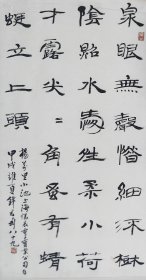 泉眼無聲惜細流樹
陰照水愛晴柔小荷
才露尖〻角蚤有蜻
蜓立上頭
楊萬里小池上海
甲戌 八十九